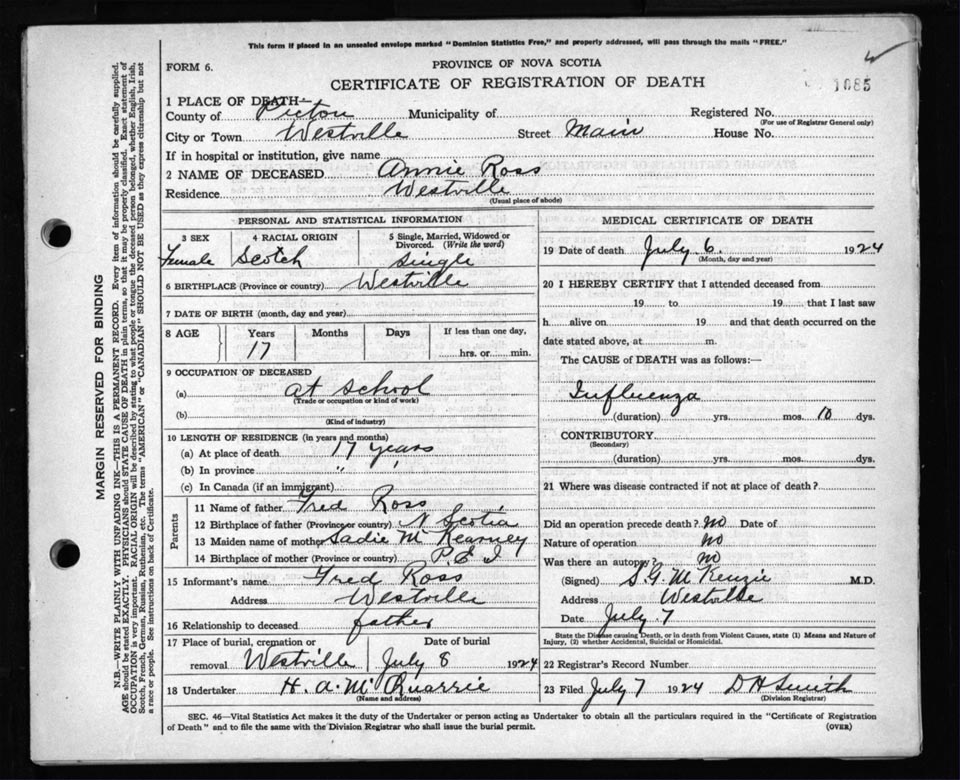 This form if placed in an unsealed envelope marked "Dominion Statistics Free," and properly addressed, will pass through the mails "FREE."
FORM 6.
PROVINCE OF NOVA SCOTIA
CERTIFICATE OF REGISTRATION OF DEATH
1085
1 PLACE OF DEATH—
County of Pictou Municipality of Registered No.
(For use of Registrar General only)
City or Town Westville Street Main House No.
If in hospital or institution, give name
2 NAME OF DECEASED Annie Ross
Residence Westville
(Usual place of abode)
PERSONAL AND STATISTICAL INFORMATION
3 SEX 4 RACIAL ORIGIN 5 Single, Married, Widowed or
Divorced. (Write the word)
Female Scotch Single
6 BIRTHPLACE (Province or country) Westville
7 DATE OF BIRTH (month, day and year)
8 AGE Years Months Days If less than one day,
17 hrs. or min.
9 OCCUPATION OF DECEASED
(a) at school
(Trade or occupation or kind of work)
(b)
(Kind of industry)
10 LENGTH OF RESIDENCE (in years and months)
(a) At place of death 17 years
(b) In province " "
(c) In Canada (if an immigrant)
Parents
11 Name of father Fred Ross
12 Birthplace of father (Province or country) N Scotia
13 Maiden name of mother Sadie McKearney
14 Birthplace of mother (Province or country) P.E.I
15 Informant's name Fred Ross
Address Westville
16 Relationship to deceased father
17 Place of burial, cremation or Date of burial
removal Westville July 8 1924
18 Undertaker H. A. McQuarrie
(Name and address)
MEDICAL CERTIFICATE OF DEATH
19 Date of death July 6. 1924
(Month, day and year)
20 I HEREBY CERTIFY that I attended deceased from
19 to 19 that I last saw
h alive on 19 and that death occurred on the
date stated above, at m.
The CAUSE of DEATH was as follows:—
Influenza
(duration) yrs. mos. 10 dys.
CONTRIBUTORY
(Secondary)
(duration) yrs. mos. dys.
21 Where was disease contracted if not at place of death?
Did an operation precede death? no Date of
Nature of operation no
Was there an autopsy? no
(Signed) S.G. McKenzie M.D.
Address Westville
Date July 7
State the Disease causing Death, or in death from Violent Causes, state (1) Means and Nature of
Injury, (2) whether Accidental, Suicidal or Homicidal.
22 Registrar's Record Number
23 Filed July 7 1924 D H Smith
(Division Registrar)
SEC. 46—Vital Statistics Act makes it the duty of the Undertaker or person acting as Undertaker to obtain all the particulars required in the "Certificate of Registration
of Death" and to file the same with the Division Registrar who shall issue the burial permit. (OVER)
MARGIN RESERVED FOR BINDING
N.B.—WRITE PLAINLY WITH UNFADING INK—THIS IS A PERMANENT RECORD. Every item of information should be carefully supplied.
AGE should be stated EXACTLY. PHYSICIANS should STATE CAUSE OF DEATH in plain terms, so that it may be properly classified. Exact statement of
OCCUPATION is very important. RACIAL ORIGIN will be described by stating to what people or tongue the deceased person belonged, whether English, Irish,
Scotch, French, German, Russian, Ruthenian, etc. The terms "AMERICAN" or "CANADIAN" SHOULD NOT BE USED as they express citizenship but not
a race or people. See instructions on back of Certificate.